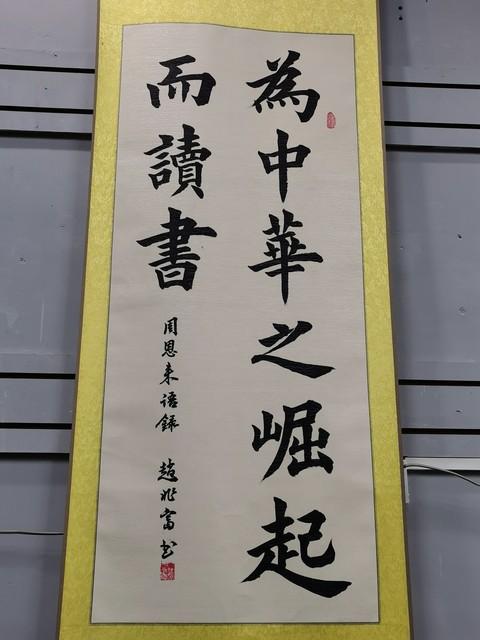 為中華之崛起
而讀書
周恩来语録 趙兆富书